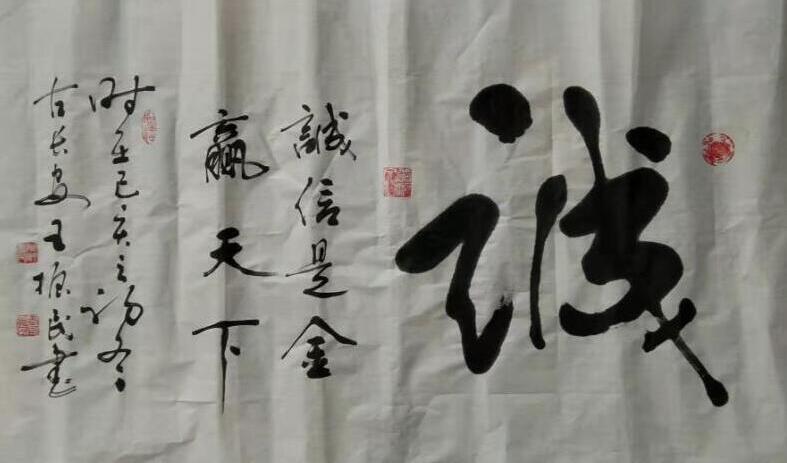 诚
誠信是金
赢天下
时在己亥之初冬
古长安王振民书